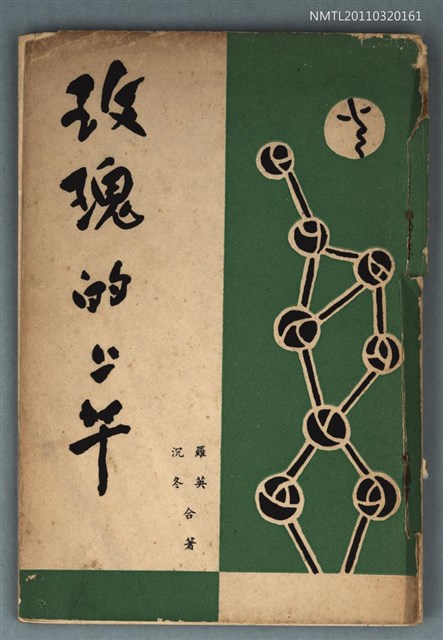 NMTL20110320161
玫瑰的上午
羅英
沉冬
合著